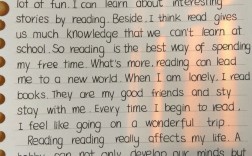 lot of fun. I can learn about interesting
stories by reading. Beside. I think read gives
us much knowledge that we can't learn at
school. So reading is the best way of spending
my free time. What's more. reading can lead
me to a new world. When I am lonely. I read
books. They are my good friends and sty
stay with me. Every time I begin to read.
I feel like going on a wonderful trip.
Reading reading really affects my life. A
can not only develop our minds but